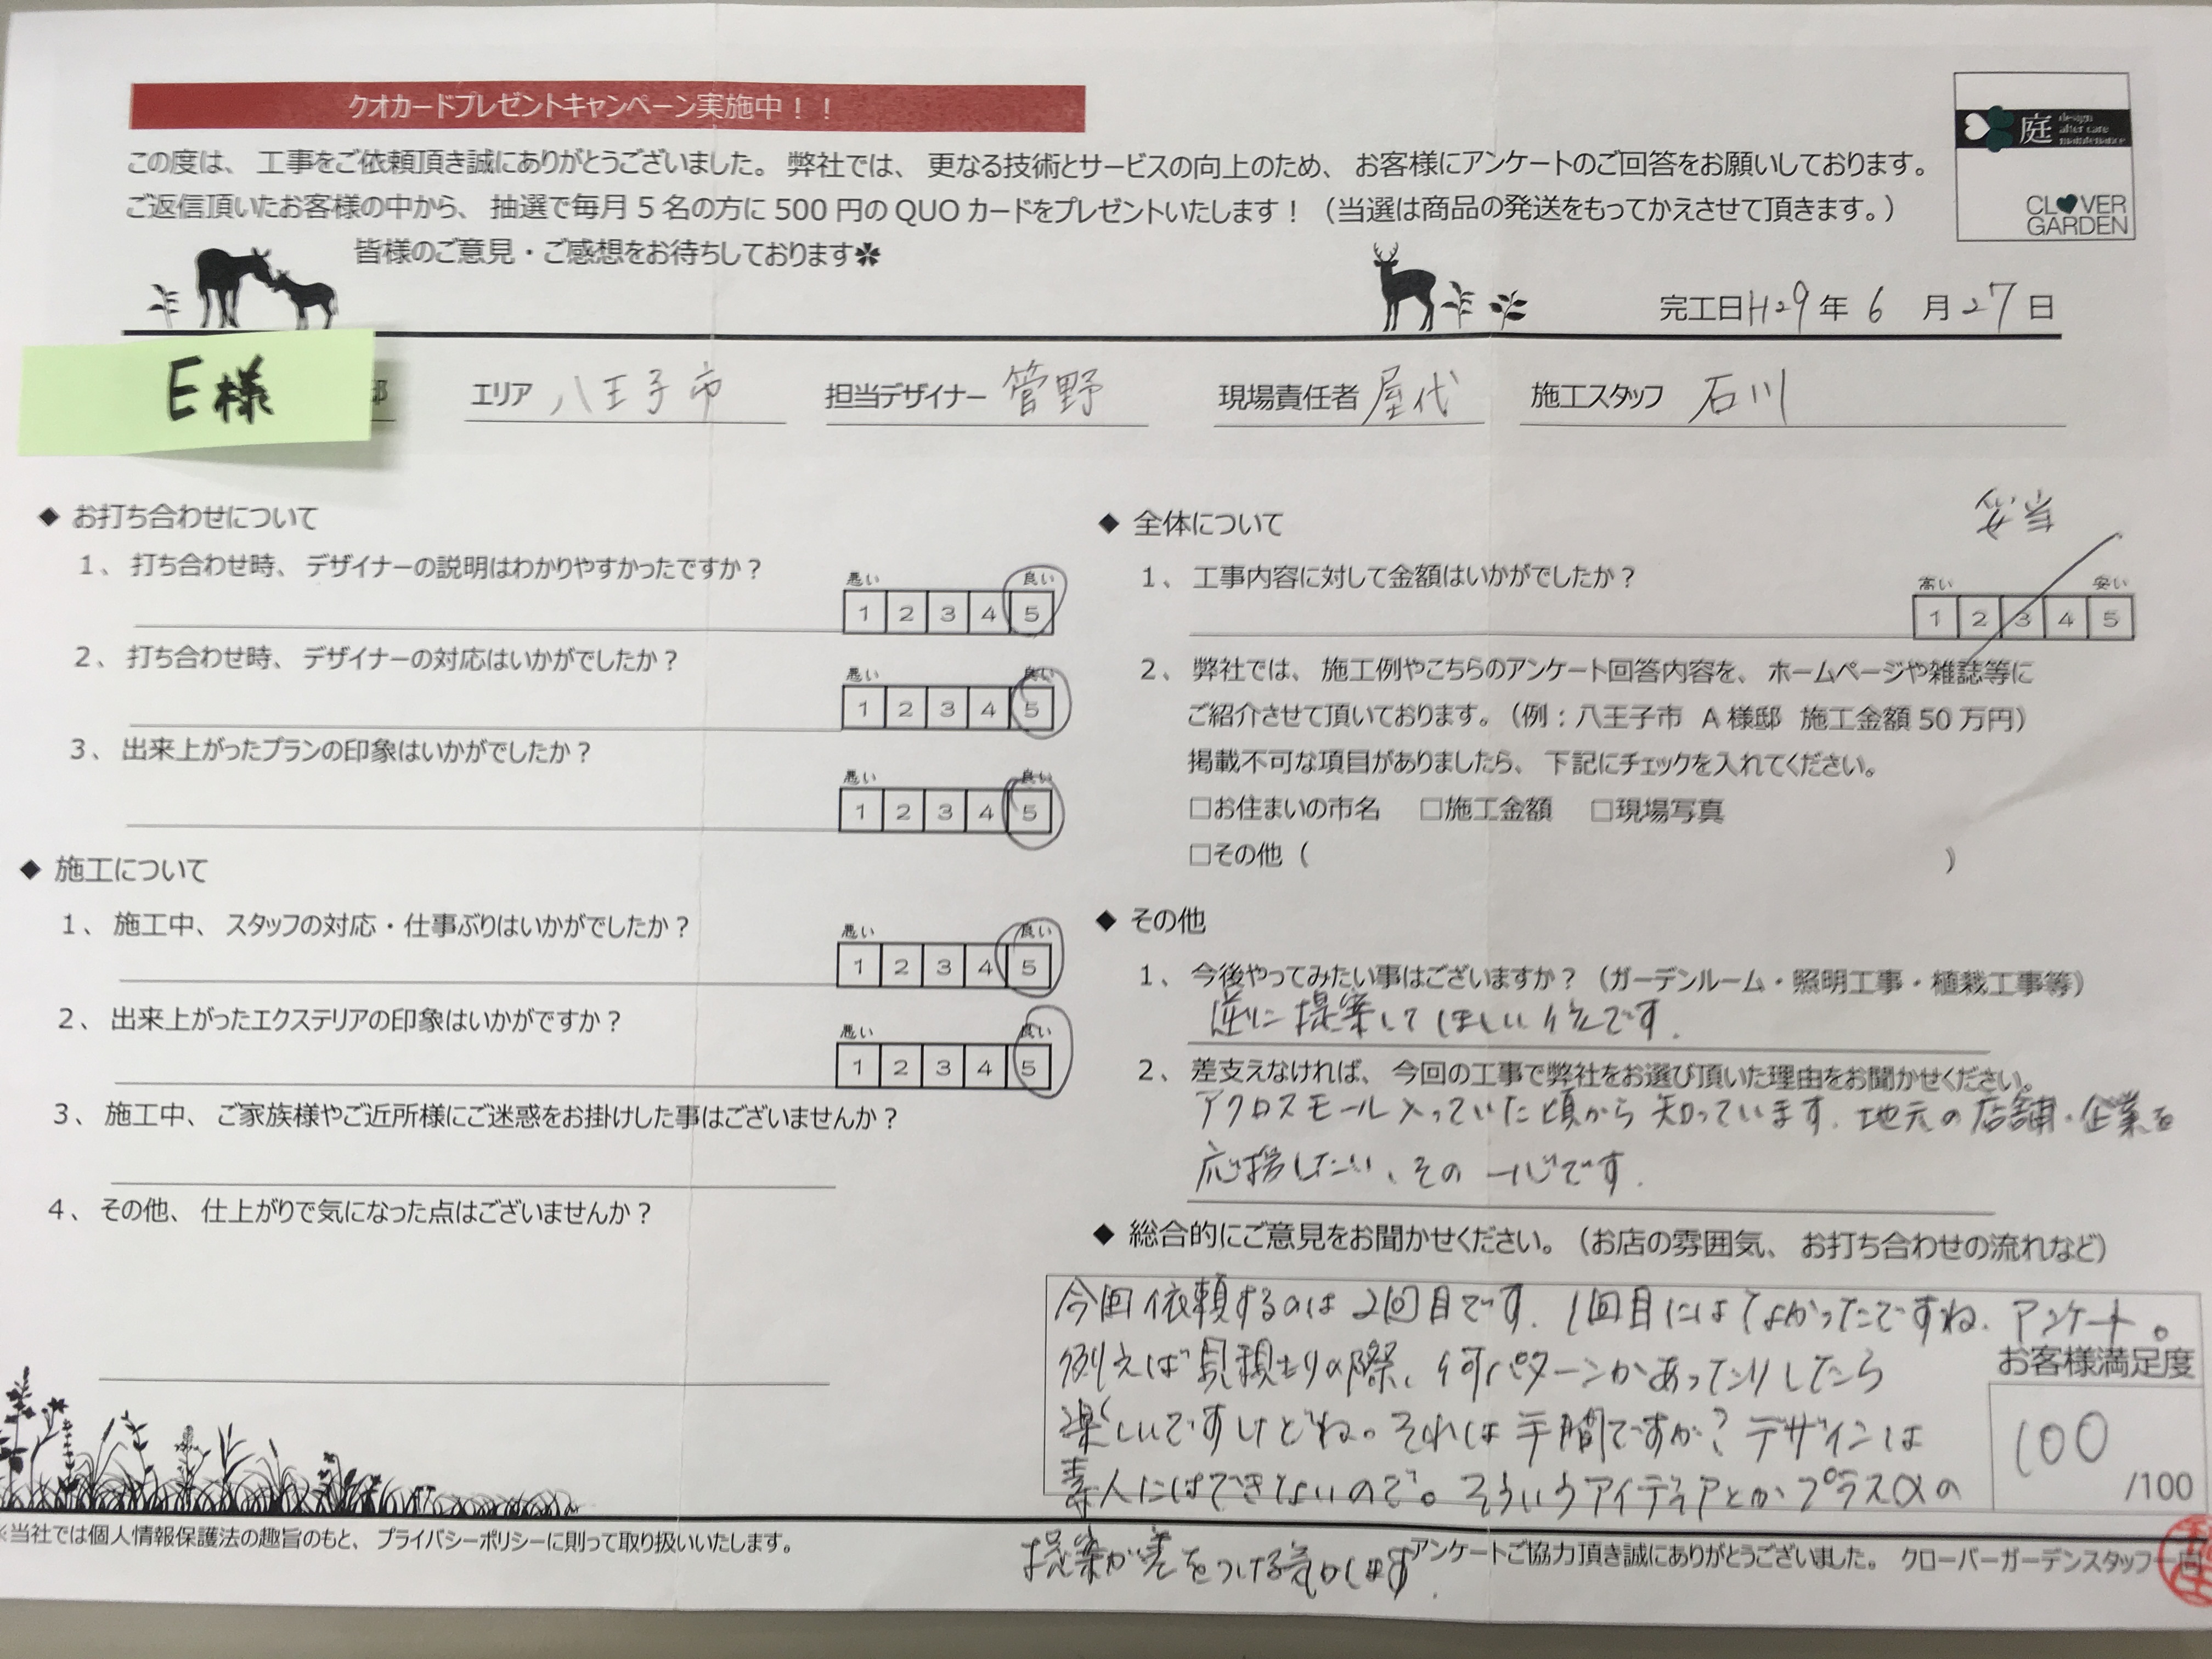 クオカードプレゼントキャンペーン実施中！！
この度は、工事をご依頼頂き誠にありがとうございました。弊社では、更なる技術とサービスの向上のため、お客様にアンケートのご回答をお願いしております。
ご返信頂いたお客様の中から、抽選で毎月5名の方に500円のQUOカードをプレゼントいたします！（当選は商品の発送をもってかえさせて頂きます。）
皆様のご意見・ご感想をお待ちしております✽
庭 design after care maintenance
CLOVER GARDEN
完工日H29年6月27日
E様 邸 エリア 八王子市 担当デザイナー 管野 現場責任者 屋代 施工スタッフ 石川
◆ お打ち合わせについて
1、打ち合わせ時、デザイナーの説明はわかりやすかったですか？
悪い 良い
1 2 3 4 5
2、打ち合わせ時、デザイナーの対応はいかがでしたか？
悪い 良い
1 2 3 4 5
3、出来上がったプランの印象はいかがでしたか？
悪い 良い
1 2 3 4 5
◆ 施工について
1、施工中、スタッフの対応・仕事ぶりはいかがでしたか？
悪い 良い
1 2 3 4 5
2、出来上がったエクステリアの印象はいかがですか？
悪い 良い
1 2 3 4 5
3、施工中、ご家族様やご近所様にご迷惑をお掛けした事はございませんか？
4、その他、仕上がりで気になった点はございませんか？
◆ 全体について
妥当
1、工事内容に対して金額はいかがでしたか？
高い 安い
1 2 3 4 5
2、弊社では、施工例やこちらのアンケート回答内容を、ホームページや雑誌等に
ご紹介させて頂いております。（例：八王子市 A様邸 施工金額50万円）
掲載不可な項目がありましたら、下記にチェックを入れてください。
□お住まいの市名 □施工金額 □現場写真
□その他（ ）
◆ その他
1、今後やってみたい事はございますか？（ガーデンルーム・照明工事・植栽工事等）
逆に提案してほしい位です.
2、差支えなければ、今回の工事で弊社をお選び頂いた理由をお聞かせください。
アクロスモール入っていた頃から知っています. 地元の店舗・企業を
応援したい、その一心です.
◆ 総合的にご意見をお聞かせください。（お店の雰囲気、お打ち合わせの流れなど）
今回依頼するのは2回目です. 1回目にはなかったですね、アンケート。
例えば見積もりの際、何パターンかあったりしたら
楽しいですけどね。それは手間ですか？デザインは
素人にはできないので。そういうアイディアとかプラスαの
提案が差をつける気がします.
お客様満足度
100
/100
※当社では個人情報保護法の趣旨のもと、プライバシーポリシーに則って取り扱いいたします。
アンケートご協力頂き誠にありがとうございました。クローバーガーデンスタッフ一同